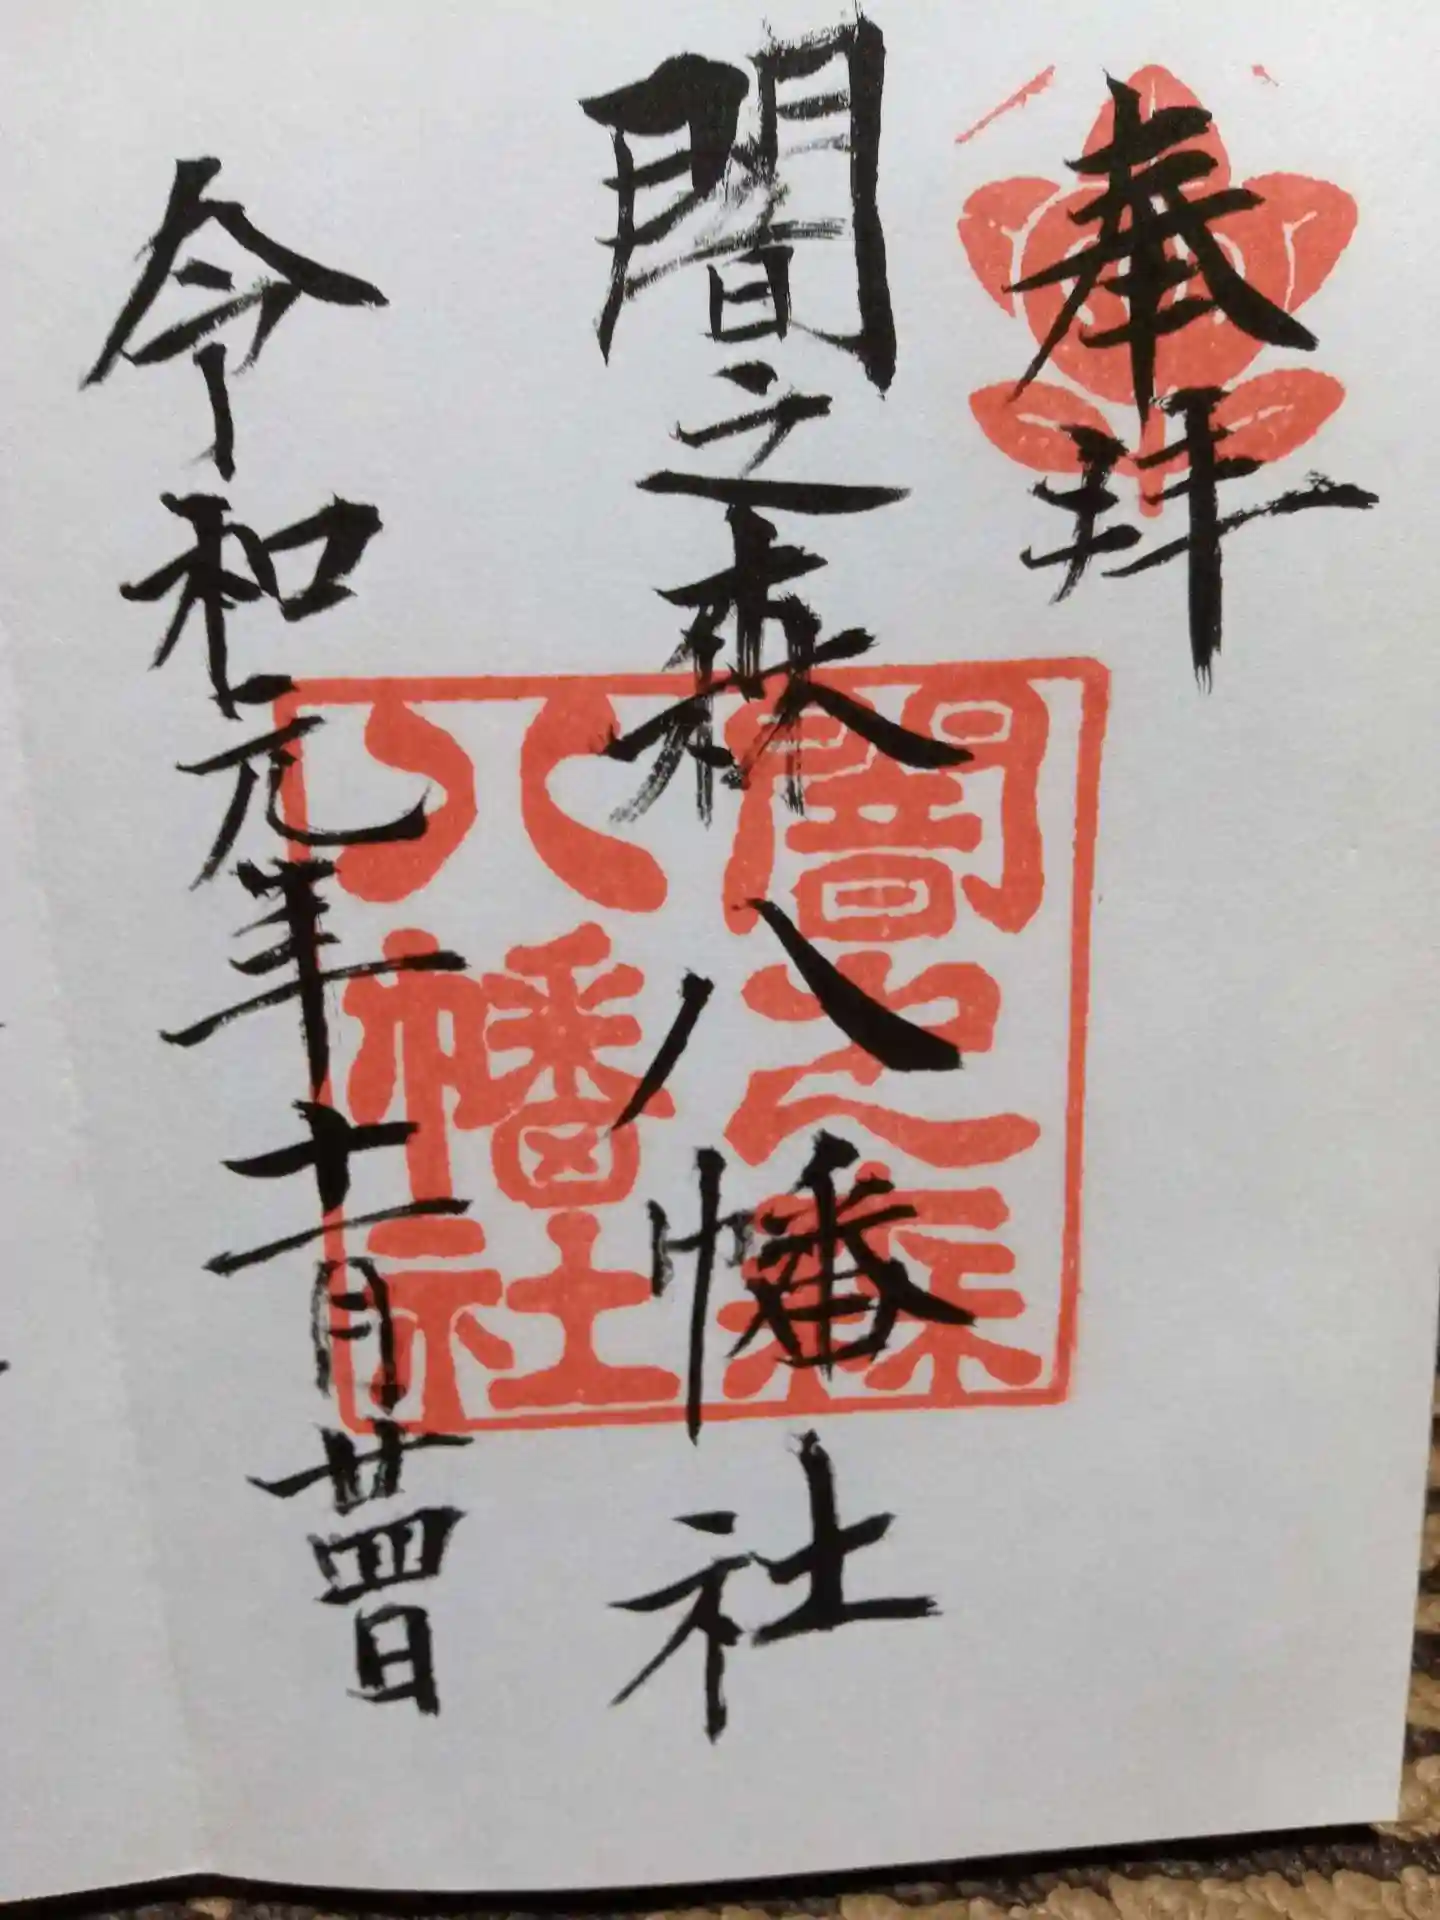 奉拝
闇之森八幡社
令和元年十一月廿四日
闇之森
八幡社